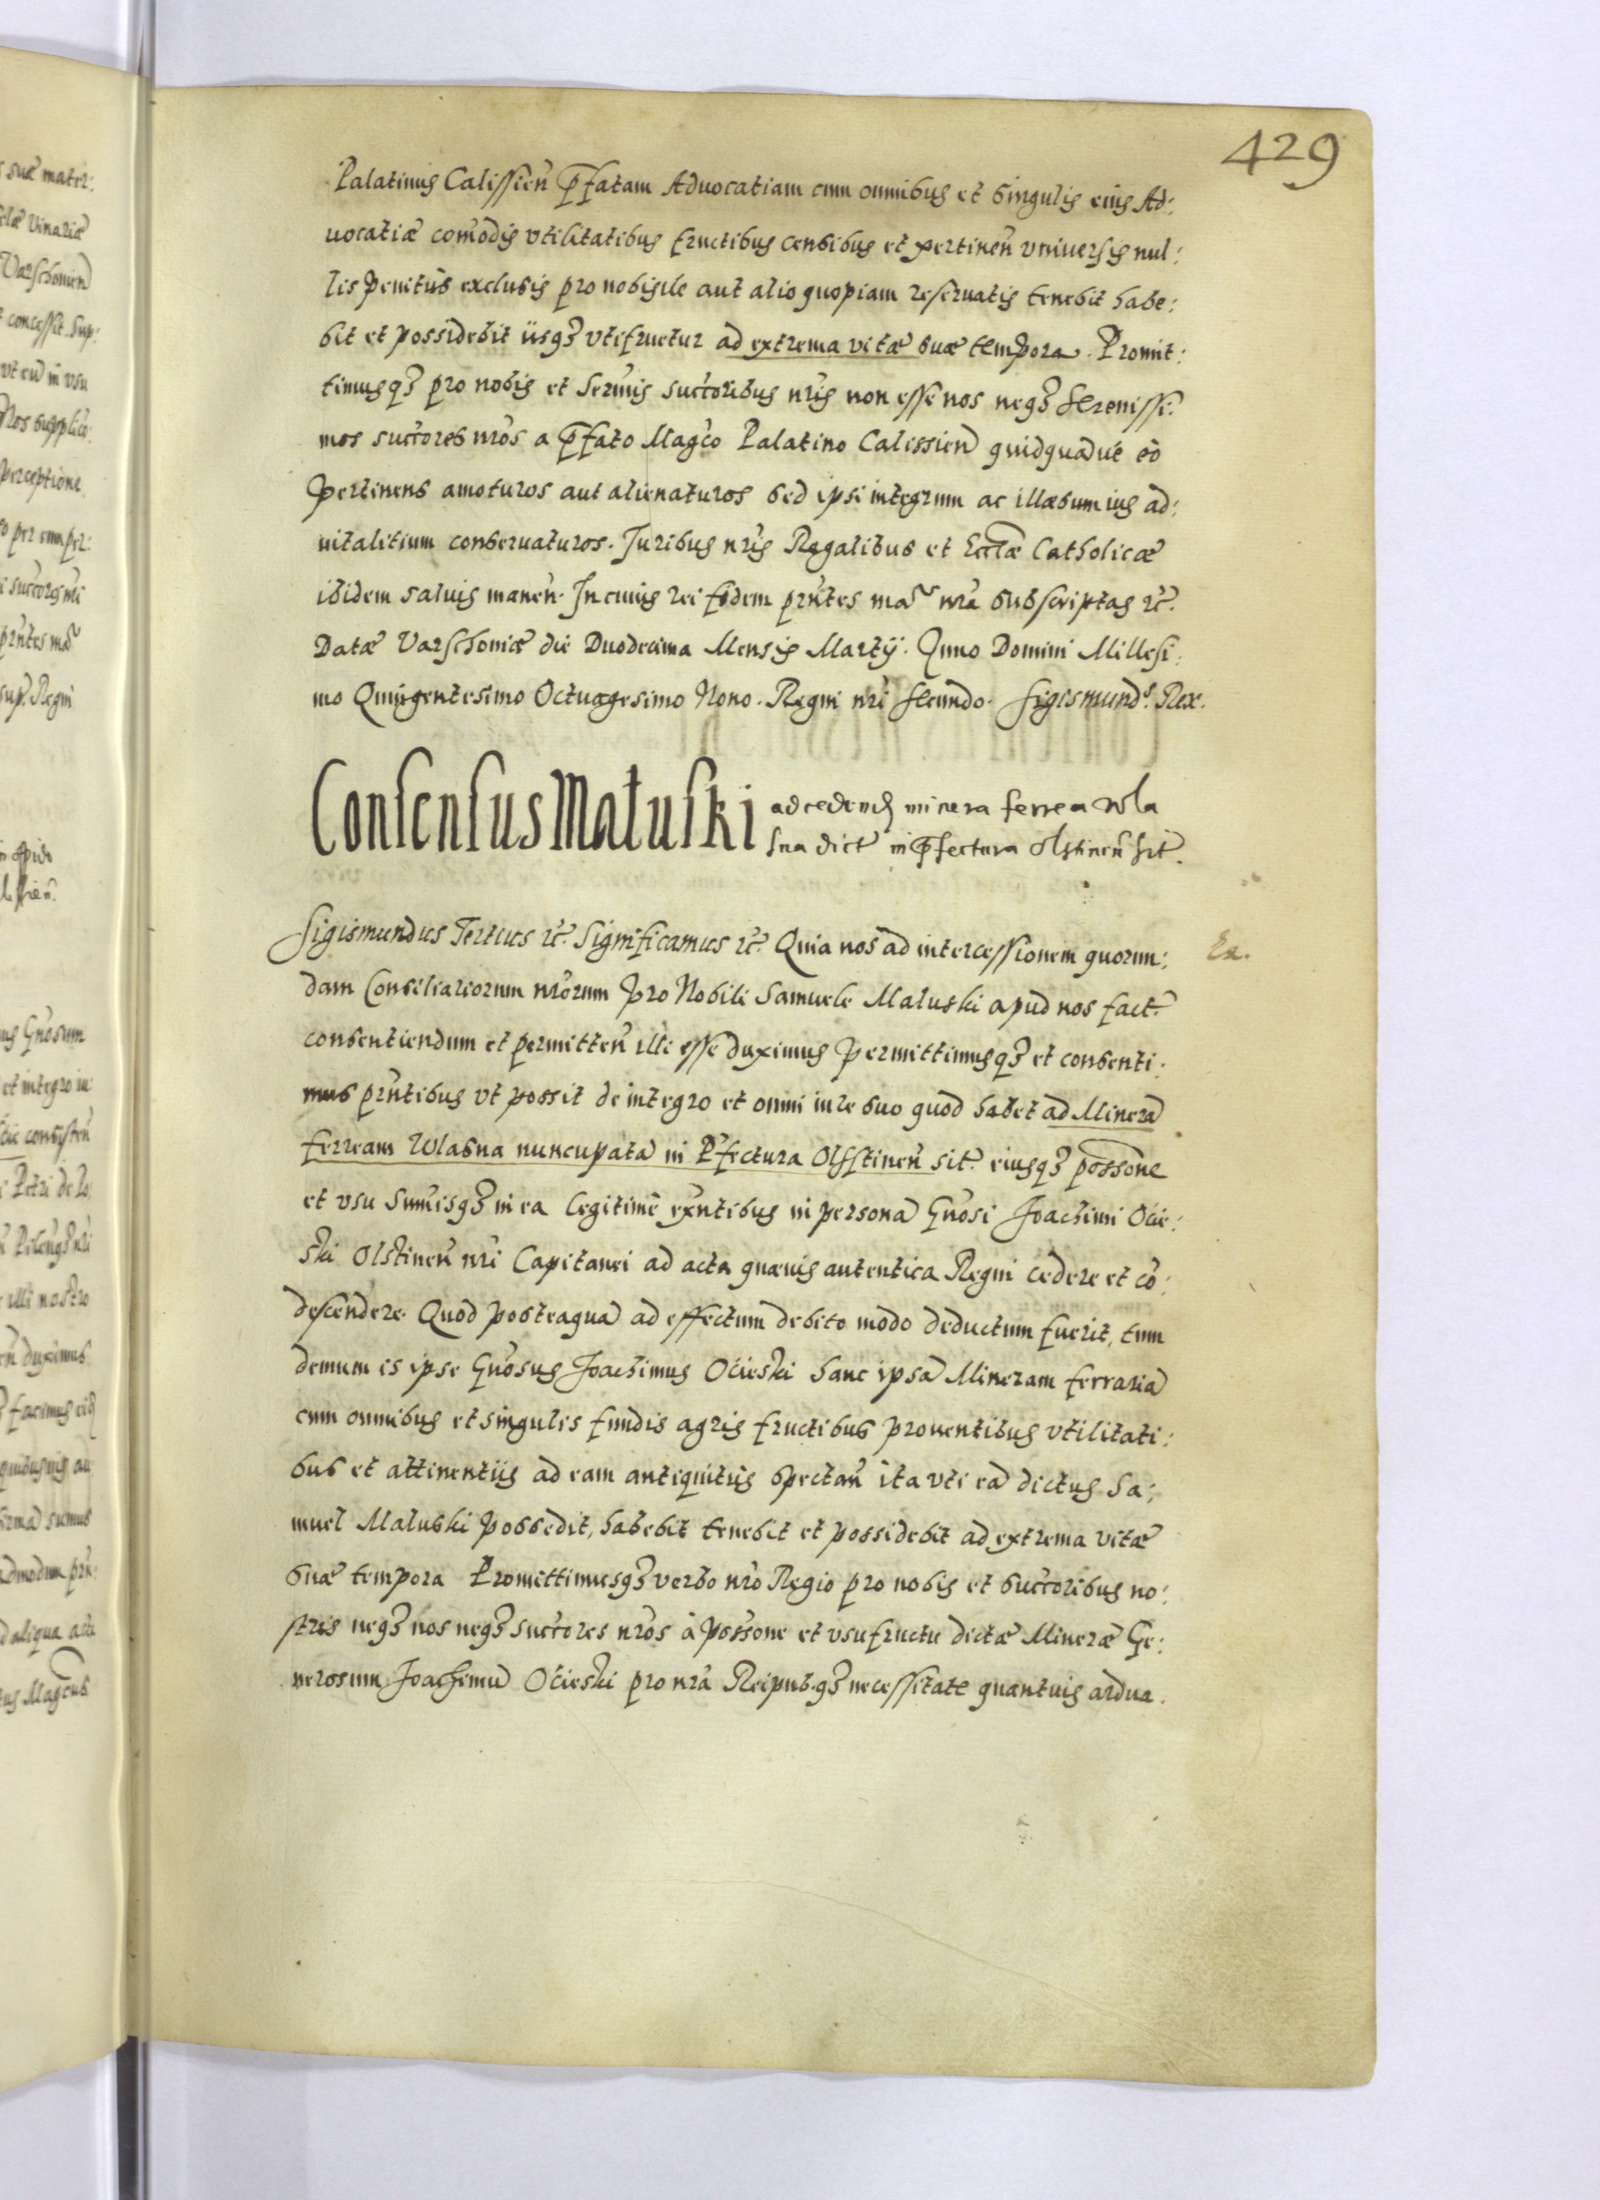 429
Palatinus Calissien̄ p̄fatam Advocatiam cum omnibus et singulis eius Ad:
uocatiæ com̄odis vtilitatibus fructibus censibus et pertinen̄ vniversis nul:
lis penitus exclusis pro nobis ile aut alio quopiam reservatis tenebit habe:
bit et possidebit iisqȝ vtifruetur ad extrema vitæ suæ tempora. Promit:
timusqȝ pro nobis et Serm̄is succ̄oribus nr̄is non esse nos neqȝ Serenissi:
mos succ̄ores nr̄os a p̄fato Maḡco Palatino Calissien̄ quidquā ve eo
pertinens amoturos aut alienaturos sed ipsi integrum ac illæsum ius ad:
vitalitium conservaturos. Juribus nr̄is Regalibus et Eccl̄æ Catholicæ
ibidem salvis manen̄. In cuius rei fidem pr̄ntes ma͠ nr̄a subscriptas ꝛc̄.
Datæ Varschoviæ die Duodecima Mensis Martij. Anno Domini Millesi:
mo Quingentesimo Octuagesimo Nono. Regni nr̄i Secundo. Sigismund9 Rex.
Consensus Maluski ad cedend minera ferrea Wla
sna dict in p̄fectura Olstinen̄ sit.
Sigismundus Tertius ꝛc̄. Significamus ꝛc̄. Quia nos ad intercessionem quorun:
Ex.
dam Consiliariorum nr̄orum pro Nobili Samuele Maluski apud nos fact.
consentiendum et permitten̄ illi esse duximus permittimusqȝ et consenti:
mus pr̄ntibus vt possit de integro et omni iure suo quod habet ad Minerā
ferream Wlasna nuncupatā in P̄fectura Olsstinen̄ sit. eiusqȝ poss̄one
et vsu Sum̄isqȝ in ea legitime exn̄tibus in personā Gn̄osi Joachimi Ocie:
ski Olstinen̄ nr̄i Capitanei ad acta quævis autentica Regni cedere et cō:
descendere. Quod posteaquā ad effectum debito modo deductum fuerit, tum
demum is ipse Gn̄osus Joachimus Ocieski hanc ipsā Mineram ferrariā
cum omnibus et singulis fundis agris fructibus proventibus vtilitati:
bus et attinentiis ad eam antiquitus spectan̄ ita vti eā dictus Sa:
muel Maluski possedit, habebit tenebit et possidebit ad extrema vitæ
suæ tempora Promittimusqȝ verbo nr̄o Regio pro nobis et succ̄oribus no:
stris neqȝ nos neqȝ succ̄ores nr̄os à poss̄one et vsufructu dictæ Mineræ Ge:
nerosum Joachimū Ocieski pro nr̄a Reipub. qȝ necessitate quantvis ardua.